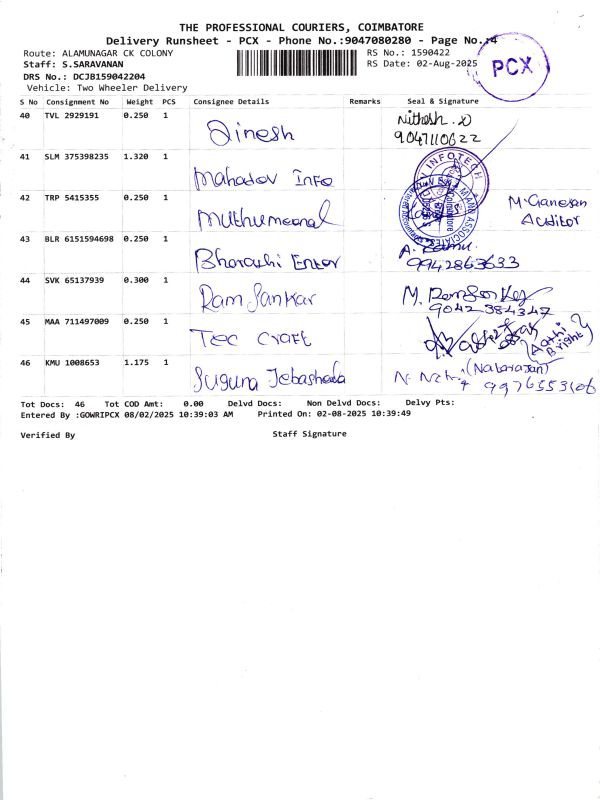 THE PROFESSIONAL COURIERS, COIMBATORE
Delivery Runsheet - PCX - Phone No.:9047080280 - Page No.:4
Route: ALAMUNAGAR CK COLONY
RS No.: 1590422
Staff: S.SARAVANAN
RS Date: 02-Aug-2025
PCX
DRS No.: DCJB159042204
Vehicle: Two Wheeler Delivery
S No Consignment No Weight PCS Consignee Details Remarks Seal & Signature
40 TVL 2929191 0.250 1 Dinesh Nithesh. D
9047110622
41 SLM 375398235 1.320 1 Mahadev Info
INFOTECH
42 TRP 5415355 0.250 1 Muthumeenal M. Ganesan
Auditor
43 BLR 6151594698 0.250 1 Bharathi Enter
9942863633
44 SVK 65137939 0.300 1 Ram Sankar
9042 384347
45 MAA 711497009 0.250 1 Tec Craft
46 KMU 1008653 1.175 1 Suguna (Natarajan)
Tot Docs: 46 Tot COD Amt: 0.00 Delvd Docs: Non Delvd Docs: Delvy Pts:
Entered By :GOWRIPCX 08/02/2025 10:39:03 AM Printed On: 02-08-2025 10:39:49
Verified By Staff Signature